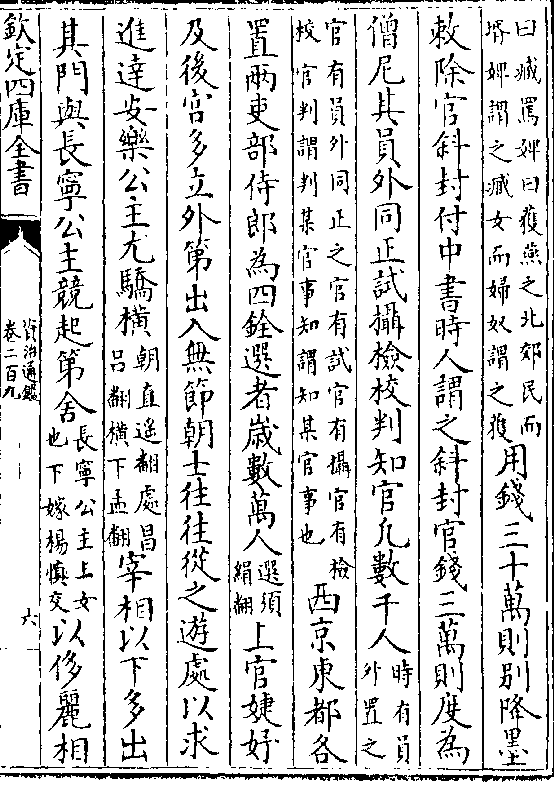 曰臧罵婢曰獲燕之北郊民而
壻婢謂之臧女而婦奴謂之獲
用錢三十萬則别降墨
敕除官斜封付中書時人謂之斜封官錢三萬則度為
僧尼其員外同正試攝檢校判知官凡數千人
時有員
外置之
官有員外同正之官有試官有攝官有檢
校官判謂判某官事知謂知某官事也
西京東都各
置兩吏部侍郎為四銓選者嵗數萬人
選須
絹翻
上官婕妤
及後宫多立外第出入無節朝士往往從之遊處以求
進達安樂公主尤驕横
朝直遥翻處昌
吕翻横下孟翻
宰相以下多出
其門與長寧公主競起第舍
長寧公主上女
也下嫁楊慎交
以侈麗相
欽定四庫全書
資治通鑑
卷二百九
六